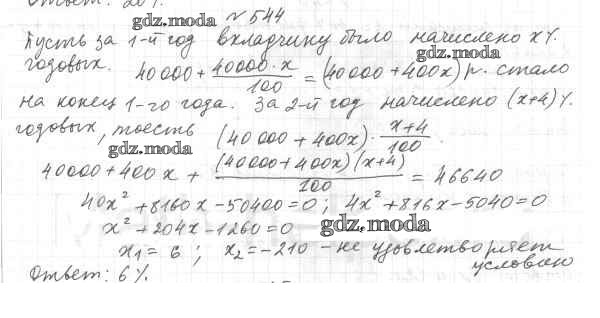 Ответ: 20%.
gdz.moda № 544
Пусть за 1-й год вкладчику было начислено x%
gdz.moda
годовых. 40000 + 40000·x/100 = (40000 + 400x) р. стало
на конец 1-го года. За 2-й год начислено (x+4)%
годовых, тоесть (40000 + 400x) · x+4/100.
gdz.moda
40000 + 400x + (40000+400x)(x+4)/100 = 46640
40x² + 8160x - 50400 = 0; 4x² + 816x - 5040 = 0
x² + 204x - 1260 = 0 gdz.moda
x₁ = 6; x₂ = -210 - не удовлетворяет
условию
Ответ: 6%.